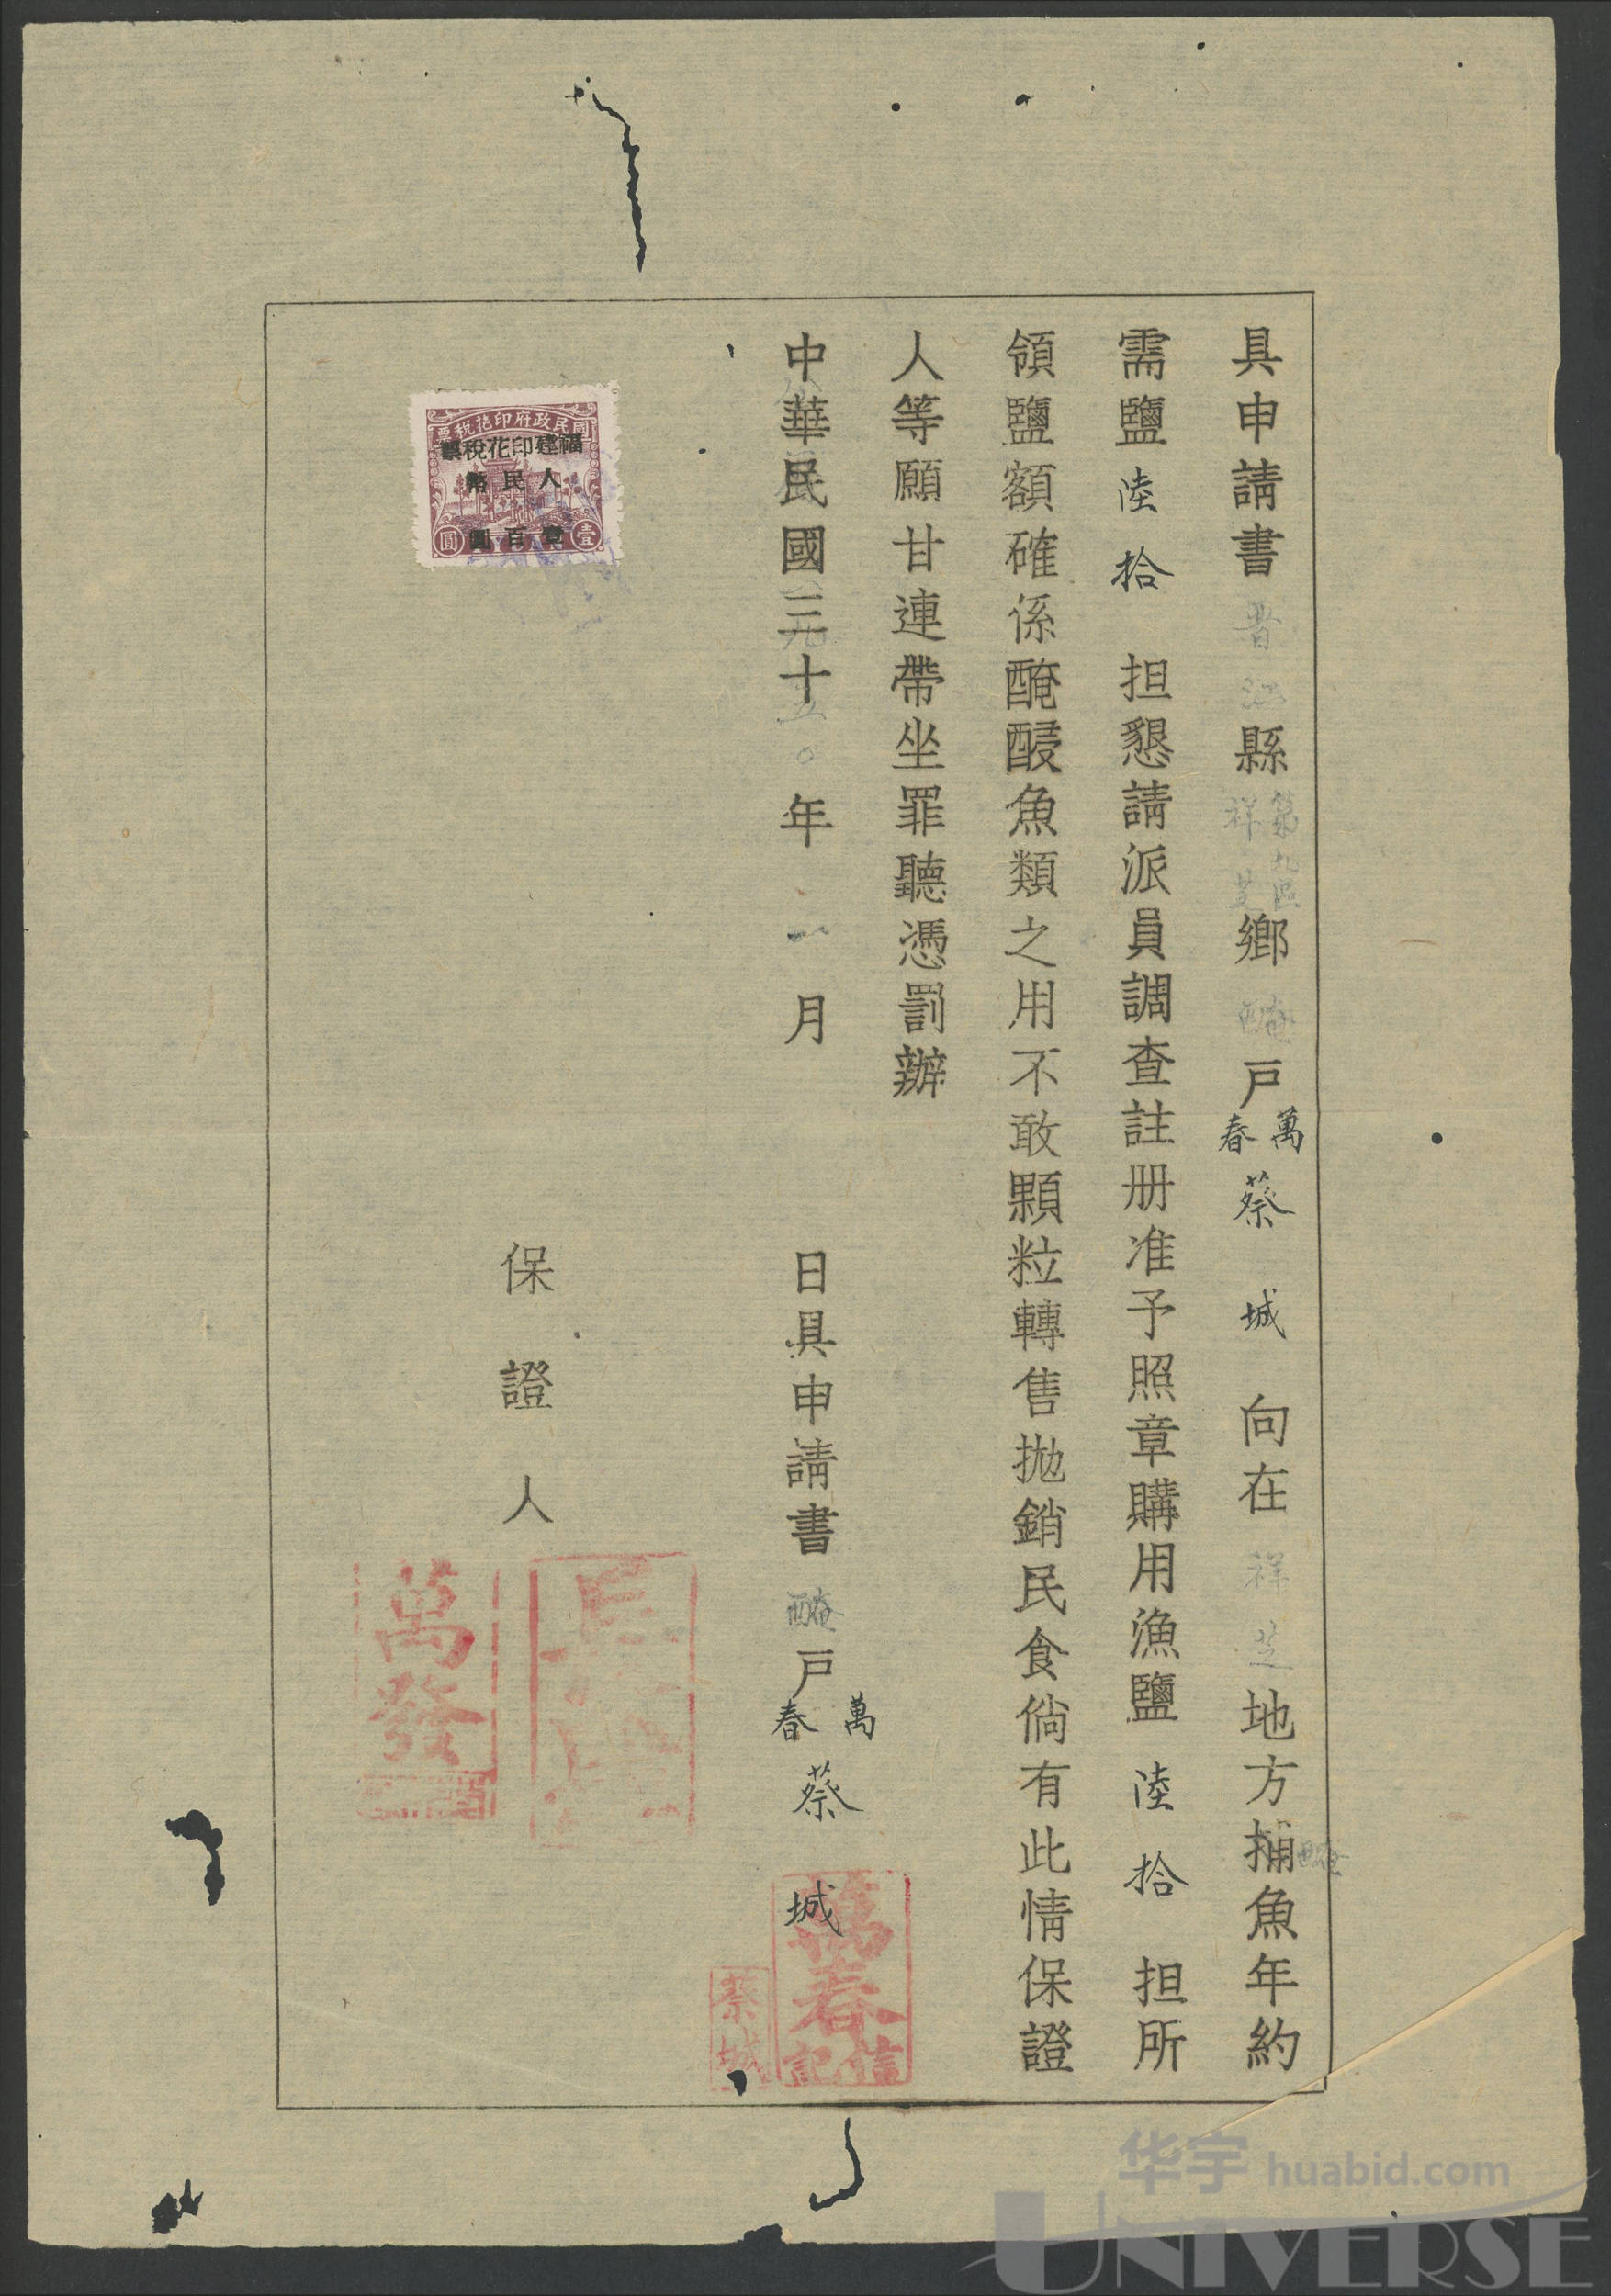 具申請書晋江縣第九區祥芝鄉醃戶萬春蔡城向在祥芝地方捕魚年約
需鹽陸拾担懇請派員調查註册准予照章購用漁鹽陸拾担所
領鹽額確係醃醃魚類之用不敢顆粒轉售拋銷民食倘有此情保證
人等願甘連帶坐罪聽憑罰辦
中華民國三十年月日具申請書醃戶萬春蔡城
萬春
信記
蔡城
保證人
萬發
國民政府印花稅票
福建印花稅票
人民幣
壹百圓
壹圓
华宇 huabid.com
UNIVERSE